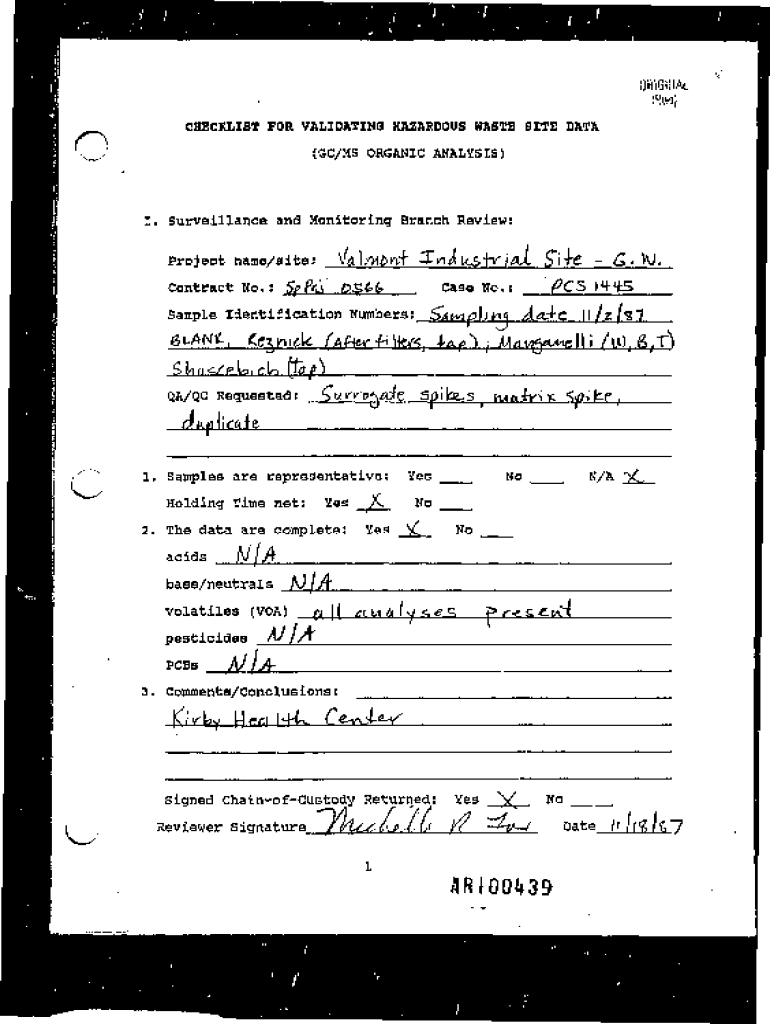 ORIGINAL
CHECKLIST FOR VALIDATING HAZARDOUS WASTE SITE DATA
(GC/MS ORGANIC ANALYSIS)
I. Surveillance and Monitoring Branch Review:
Project name/site: Valmont Industrial Site - G.W.
Contract No.: 0566 Case No.: PCS 1445
Sample Identification Numbers: Sampling date 11/2/87
BLANK, Reznick (After filters, tap), Manganelli (W, B, T)
(Tap)
QA/QC Requested: Surrogate spikes, matrix spike,
duplicate
1. Samples are representative: Yes ___ No ___ N/A X
Holding Time met: Yes X No ___
2. The data are complete: Yes X No ___
acids N/A
base/neutrals N/A
volatiles (VOA) all analyses present
pesticides N/A
PCBs N/A
3. Comments/Conclusions:
Kirby Health Center
Signed Chain-of-Custody Returned: Yes X No ___
Reviewer Signature Date 11/18/87
1
AR100439